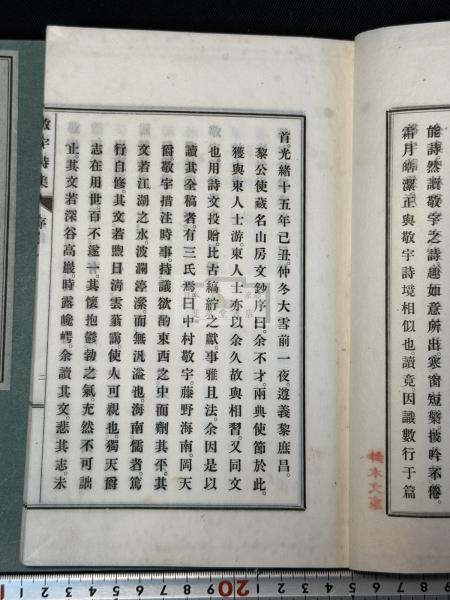 能詩然讀敬宇之詩趣如意所出寒窗短檠披吟不倦
霜月皦潔正與敬宇詩境相似也。讀竟。因識數行于篇
首。光緒十五年己丑。仲冬大雪前一夜。遵義黎庶昌。
黎公使藏名山房文鈔序曰。余不才。兩典使節於此。
獲與東人士游。東人士亦以余久故與相習。又同文
也。用詩文投贈。比古縞紵之獻。事雅且法。余因是以
讀其全稿者。有三氏焉。曰中村敬宇。藤野海南。岡天
爵。敬宇措注時事。持議欲酌東西之中而劑其平。其
文若江湖之水。波瀾渟瀠。而無汎溢也。海南儒者。篤
行自修。其文若煦日清雲。蓊靄使人可親也。獨天爵
志在用世。百不遂一。其懷抱鬱勃之氣。充然不可詘
止。其文若深谷高巖。時露巉崿。余讀其文。悲其志。未
敬宇詩集
序
二